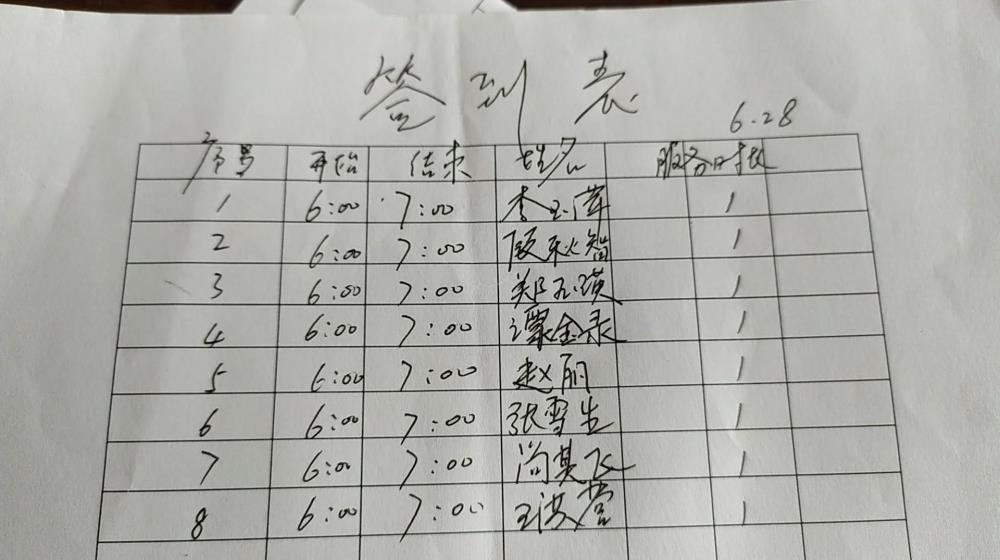 签到表
6.28
序号 开始 结束 姓名 服务时长
1 6:00 7:00 李玉萍 1
2 6:00 7:00 段秋智 1
3 6:00 7:00 郑玉瑛 1
4 6:00 7:00 谭金录 1
5 6:00 7:00 赵丽 1
6 6:00 7:00 张雪生 1
7 6:00 7:00 尚其飞 1
8 6:00 7:00 王洪营 1